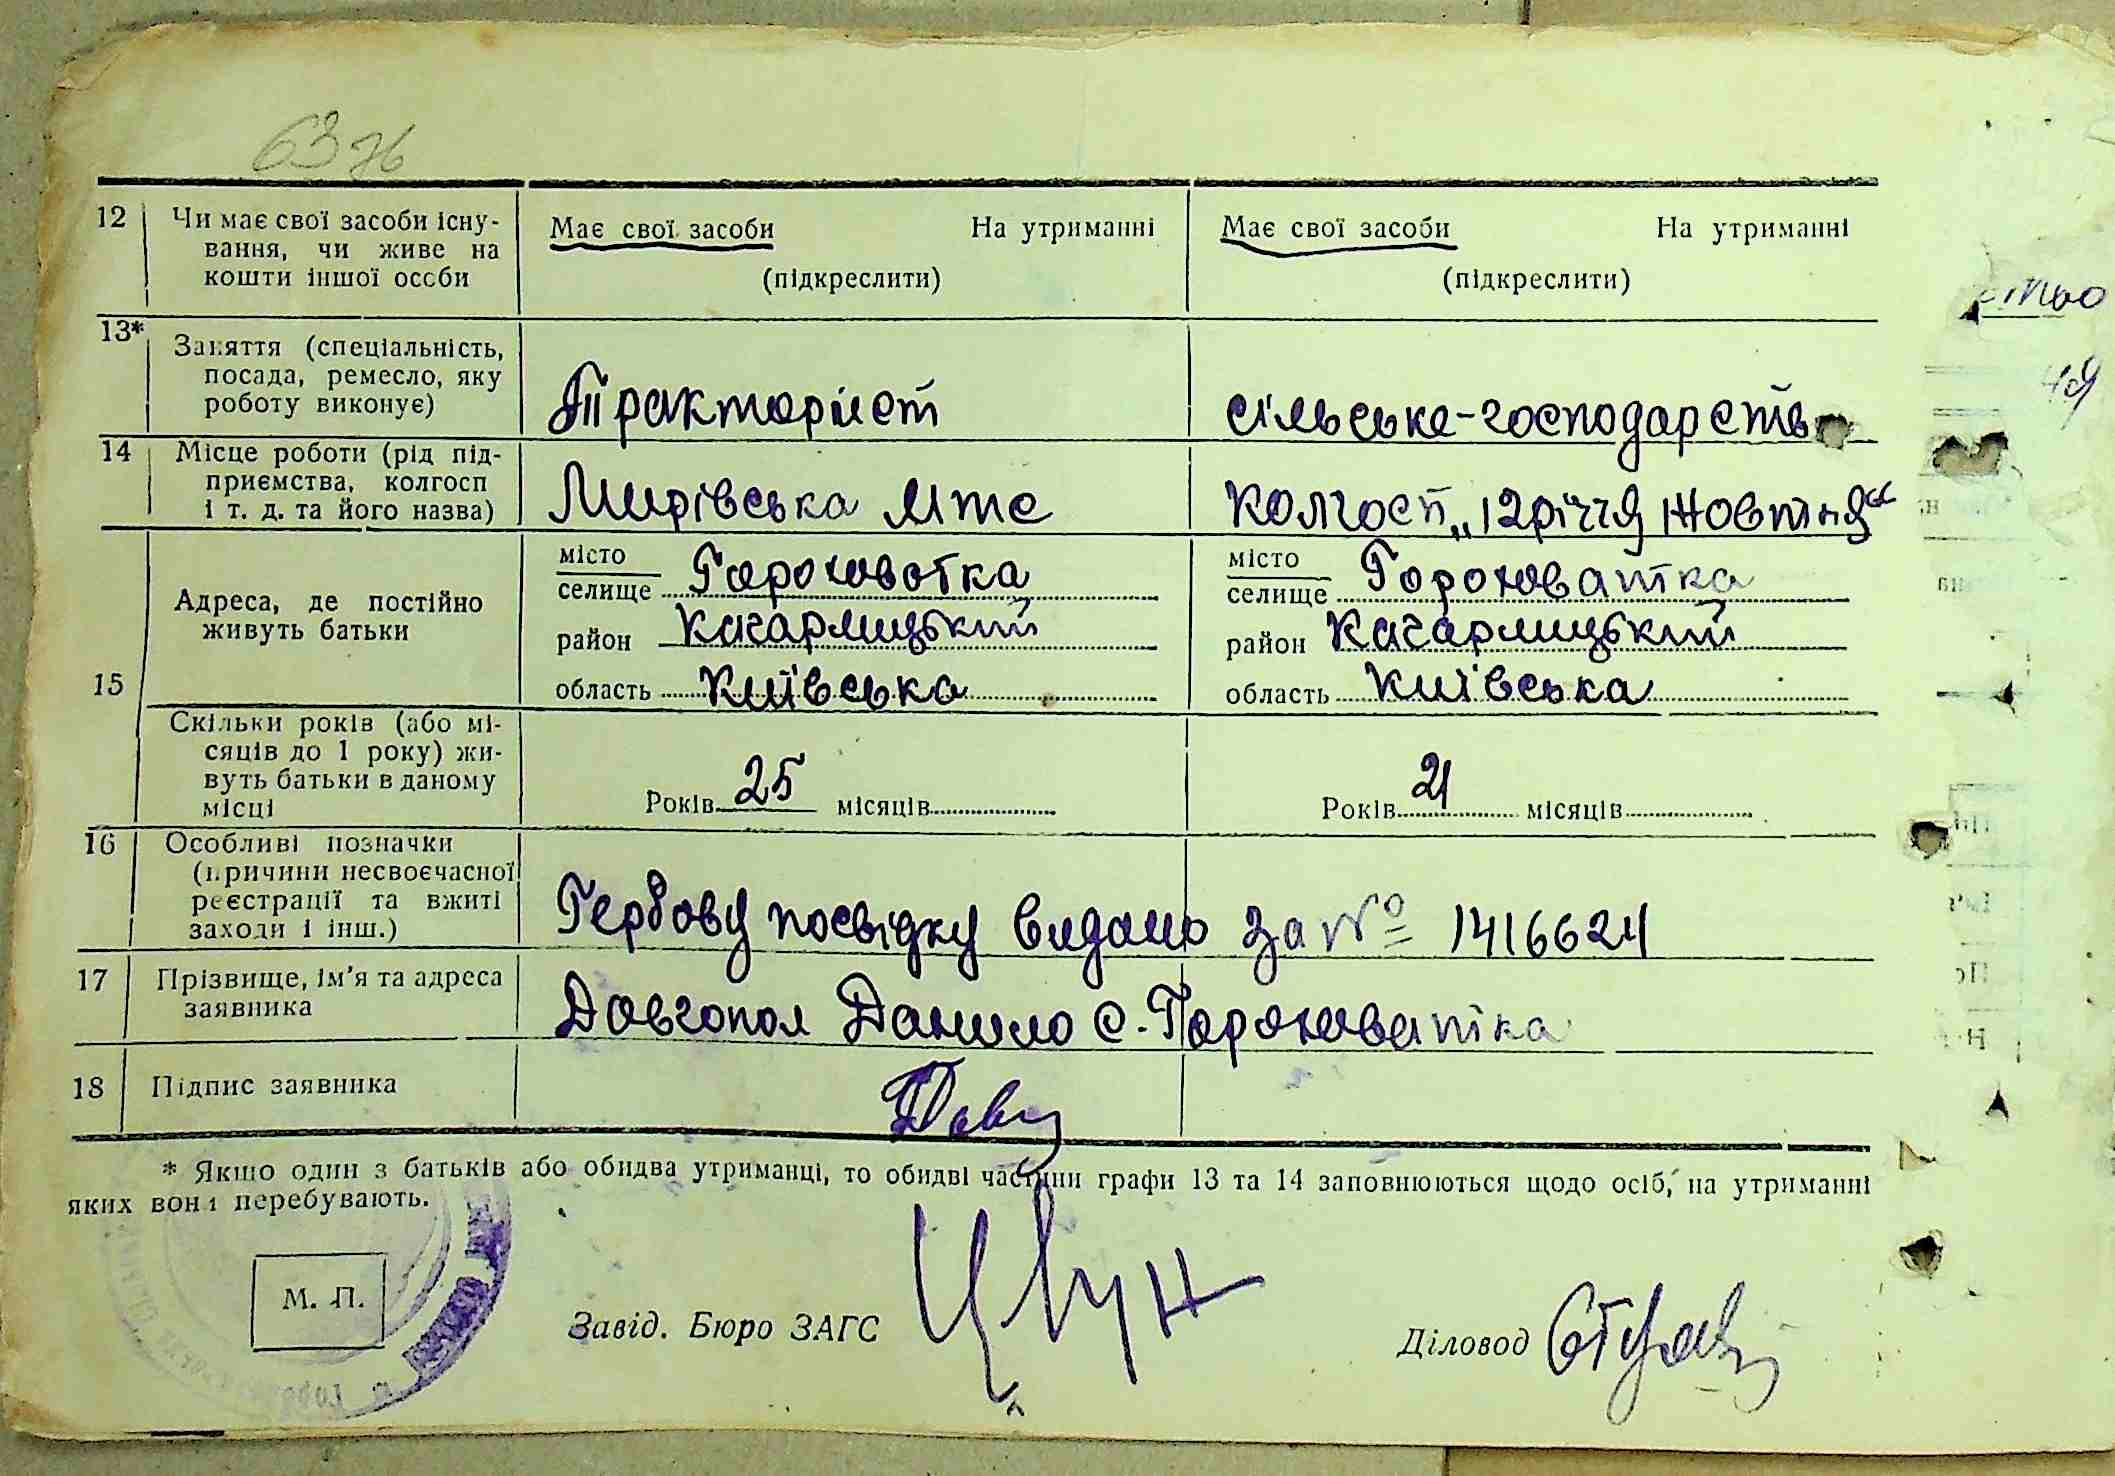 6376
12 Чи має свої засоби існу-
вання, чи живе на
кошти іншої особи
Має свої засоби На утриманні
(підкреслити)
Має свої засоби На утриманні
(підкреслити)
13* Заняття (спеціальність,
посада, ремесло, яку
роботу виконує)
Тракторист
сільське-господарств
14 Місце роботи (рід під-
приємства, колгосп
і т. д. та його назва)
Мирівська мтс
колгосп „12річчя Жовтня“
15
Адреса, де постійно
живуть батьки
місто
селище Гороховатка
район Кагарлицький
область Київська
місто
селище Гороховатка
район Кагарлицький
область Київська
Скільки років (або мі-
сяців до 1 року) жи-
вуть батьки в даному
місці
Років 25 місяців
Років 21 місяців
16 Особливі позначки
(причини несвоєчасної
реєстрації та вжиті
заходи і інш.)
Гербову посвідку видано за № 1416624
17 Прізвище, ім'я та адреса
заявника
Довгопол Данило с. Гороховатка
18 Підпис заявника
Довг
* Якщо один з батьків або обидва утриманці, то обидві частини графи 13 та 14 заповнюються щодо осіб, на утриманні
яких вони перебувають.
М. П.
Завід. Бюро ЗАГС
Діловод